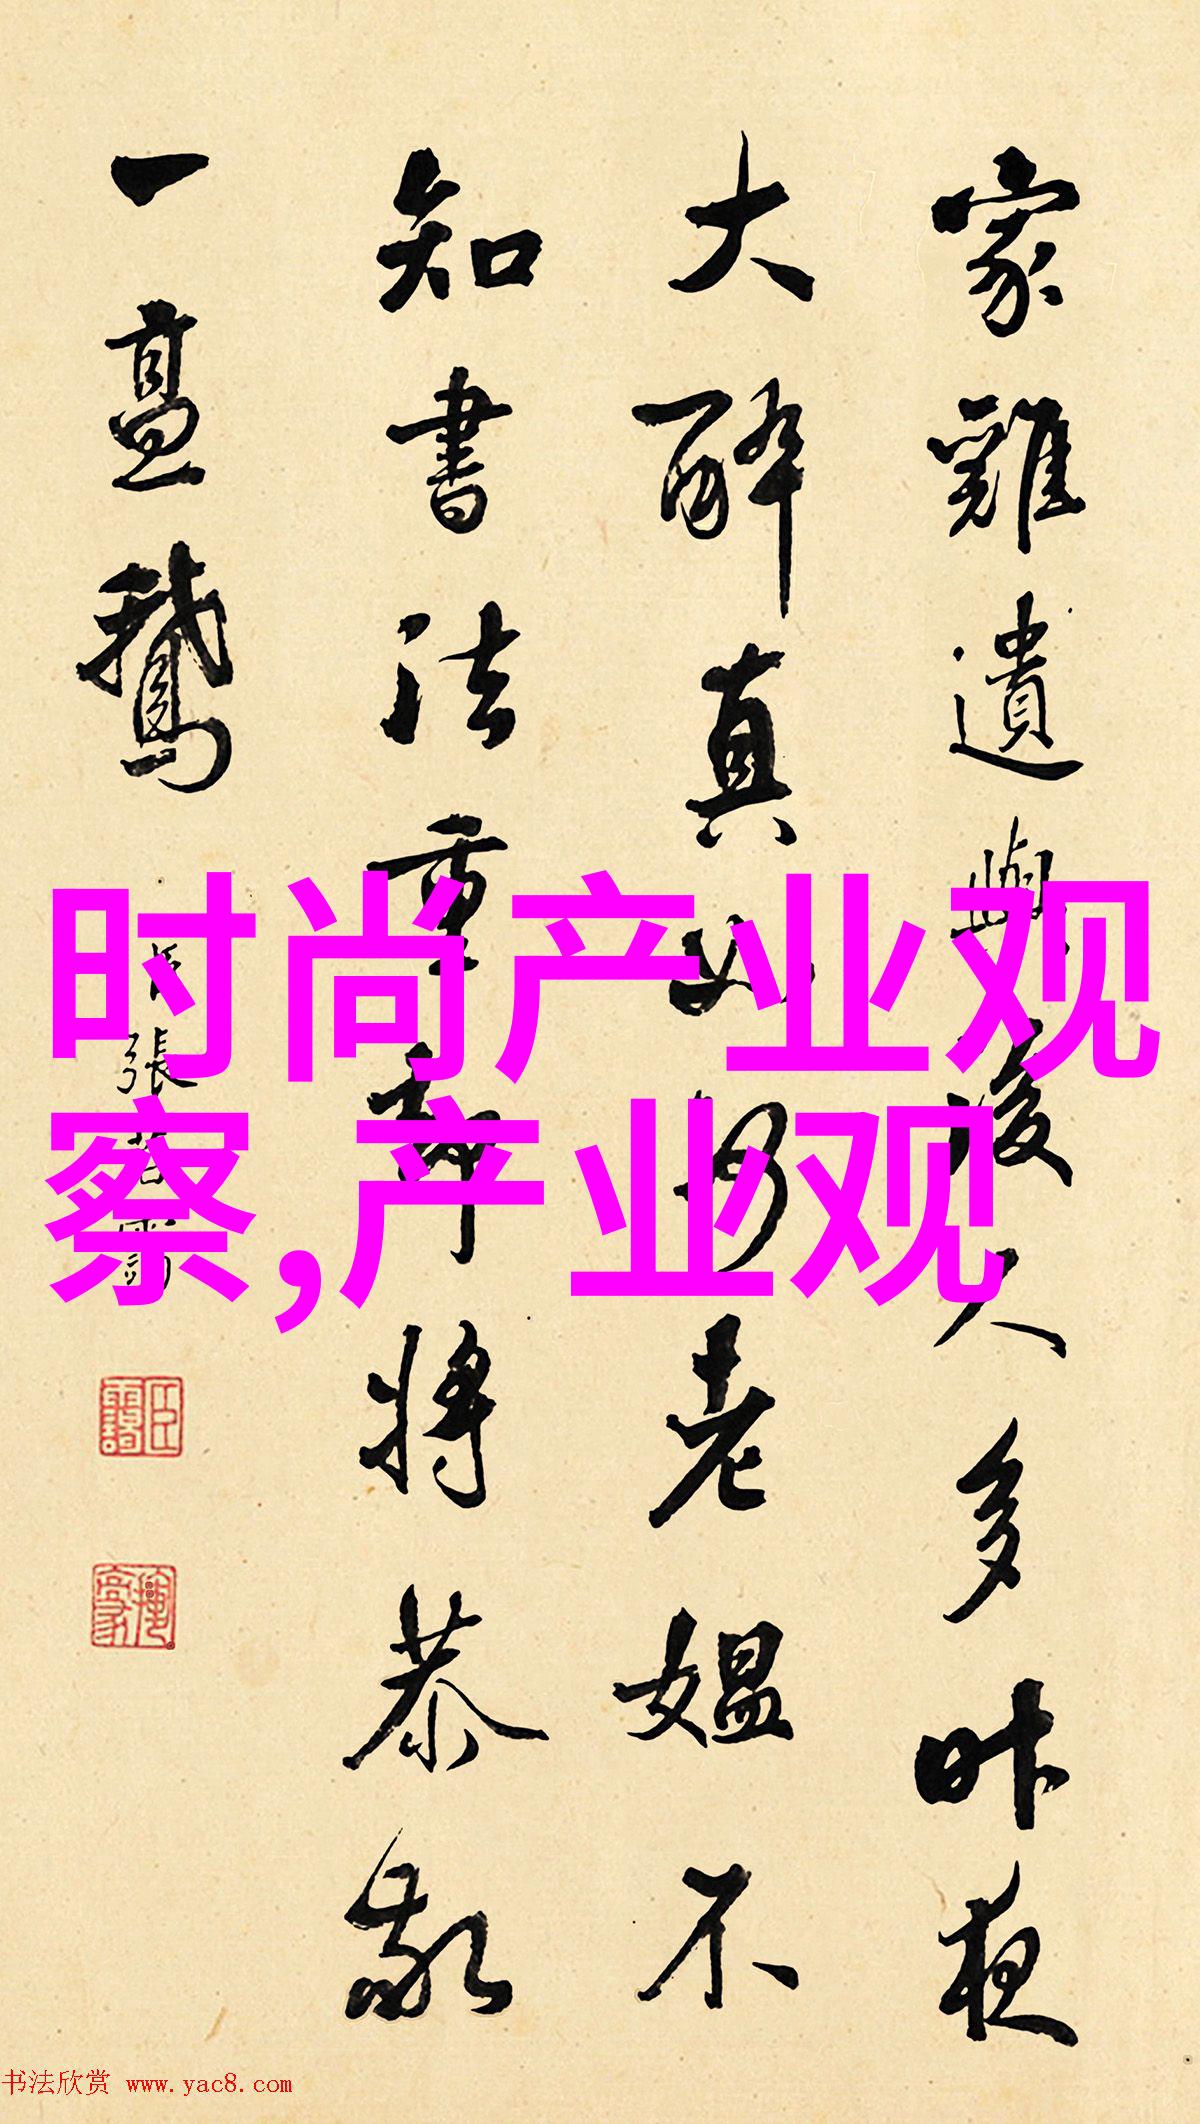 家雞遺與後人多昨夜
大醉真如何老媼不
知書法重卻將恭敬
一鵞
張
时尚产业观
察,产业观
书法欣赏 www.yac8.com